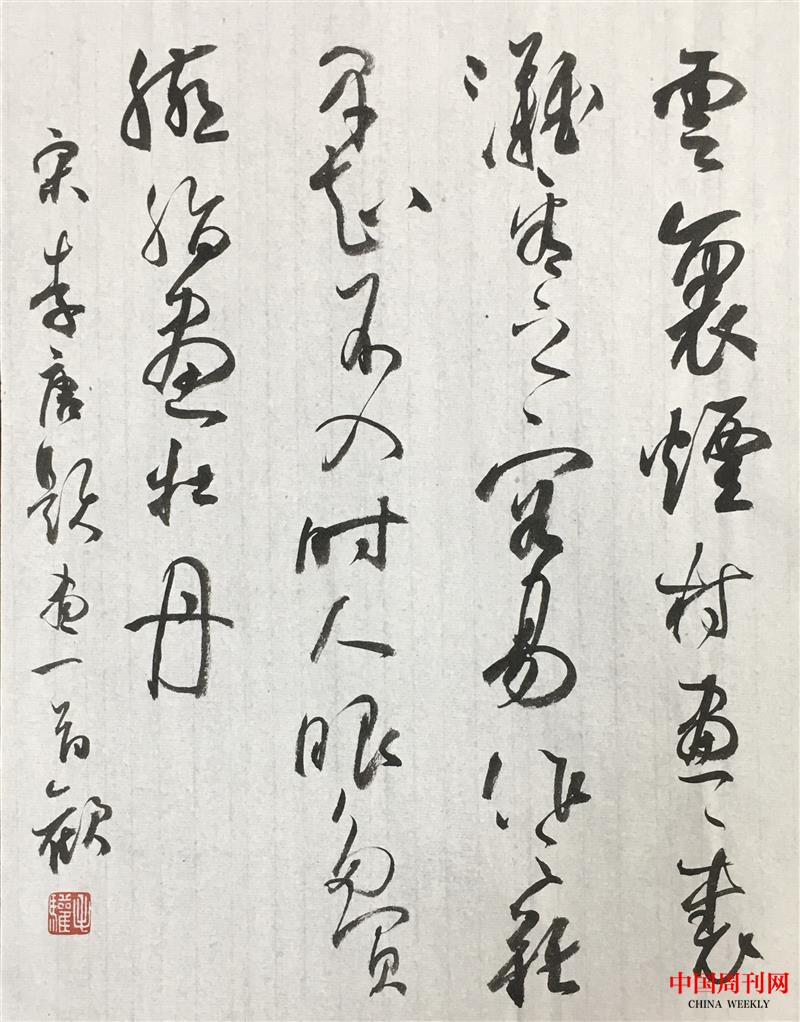 雲裏煙村雨裏
灘看之容易作之難
早知不入時人眼多買
臙脂畫牡丹
宋李唐題畫一首歡
中国周刊网
CHINA WEEKLY